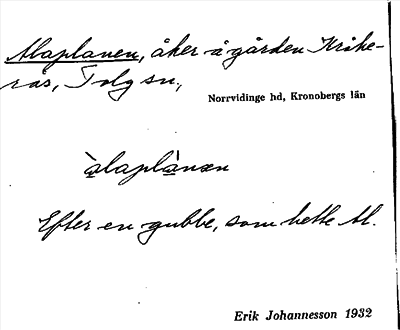 Alaplanen, åker å gården Kråke-
rås, Tolg sn,
Norrvidinge hd, Kronobergs län
àlaplànæn
Efter en gubbe, som hette Al.
Erik Johannesson 1932